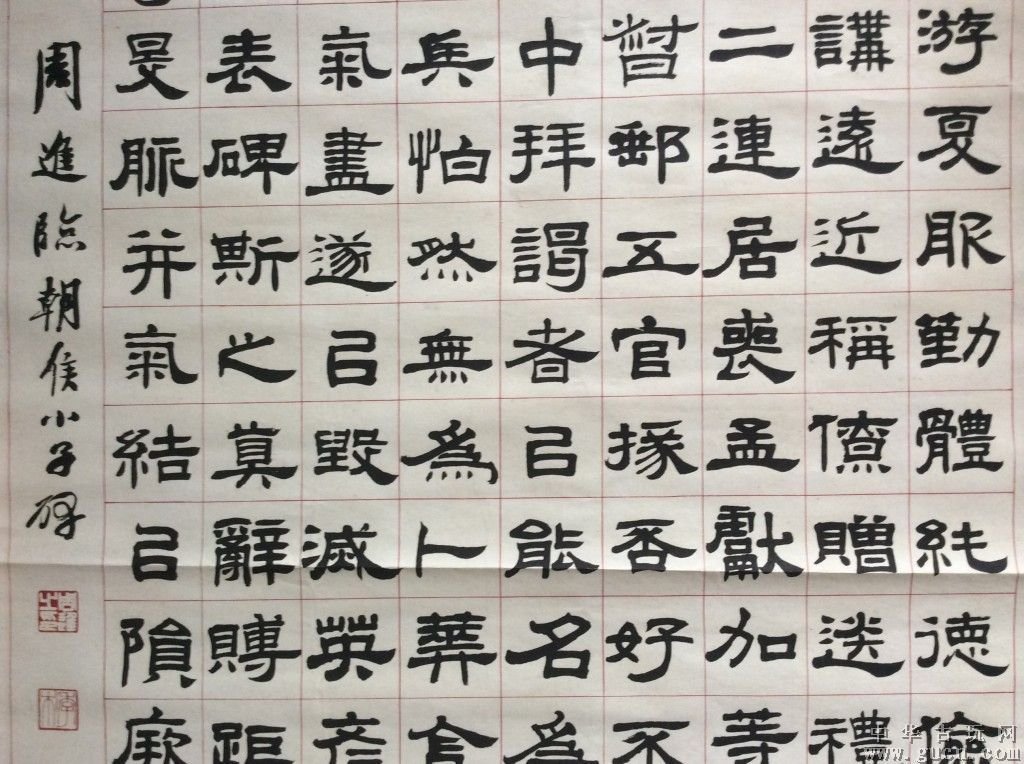 游夏服勤體純德
講遠近稱僚贈送禮
二連居喪孟獻加等
督郵五官掾否好不
中拜謁者㠯能名為
兵怕然無為卜葬含
氣盡遂㠯毀滅英彦
表碑斯之真辭賻距
旻脈并氣結㠯隕厥
周進臨朝侯小子碑
中华古玩网
www.gucn.com